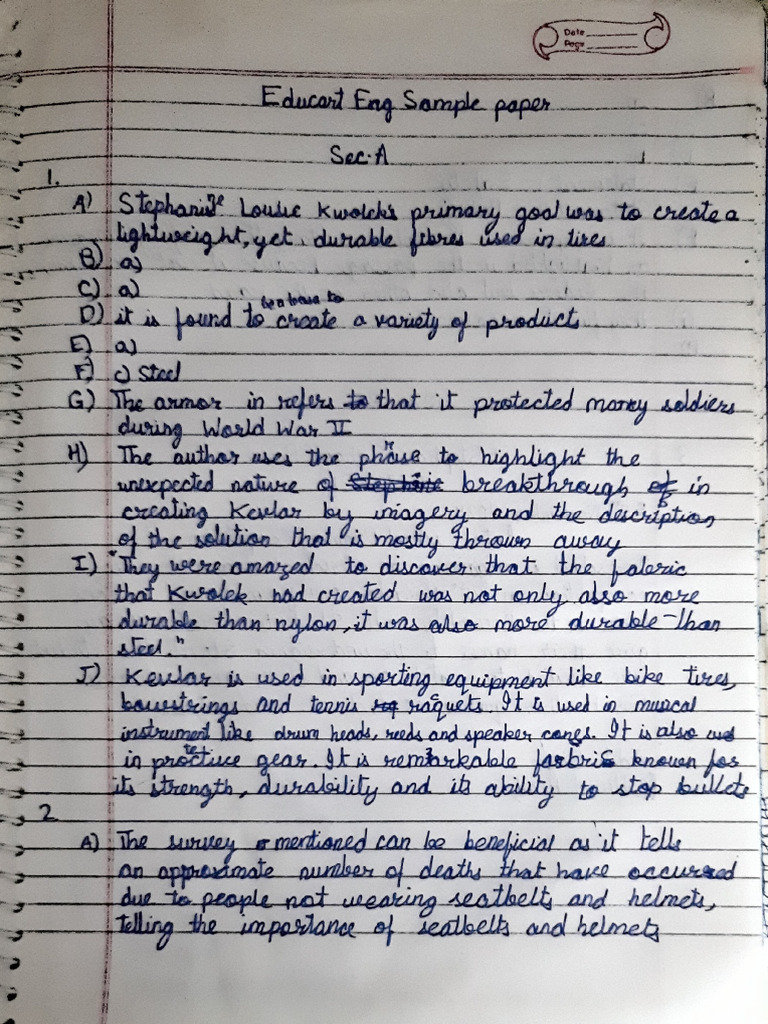 Date
Page
Educart Eng Sample paper
Sec-A
1.
A) Stephanie Loulie Kwolek's primary goal was to create a
lightweight, yet durable fibres used in tires
B) a)
C) a)
D) it is found to create a variety of products
E) a)
F) c) Steel
G) The armor in refers to that it protected money soldiers
during World War II
H) The author uses the phrase to highlight the
unexpected nature of Stephanie breakthrough of in
creating Kevlar by imagery and the description
of the solution that is mostly thrown away
I) "They were amazed to discover that the fabric
that Kwolek had created was not only also more
durable than nylon, it was also more durable than
steel."
J) Kevlar is used in sporting equipment like bike tires,
bowstrings and tennis raquets. It is used in musical
instrument like drum heads, reeds and speaker cones. It is also used
in protective gear. It is remarkable farbric known for
its strength, durability and its ability to stop bullets
2
A) The survey mentioned can be beneficial as it tells
an approximate number of deaths that have occurred
due to people not wearing seatbelts and helmets,
telling the importance of seatbelts and helmets